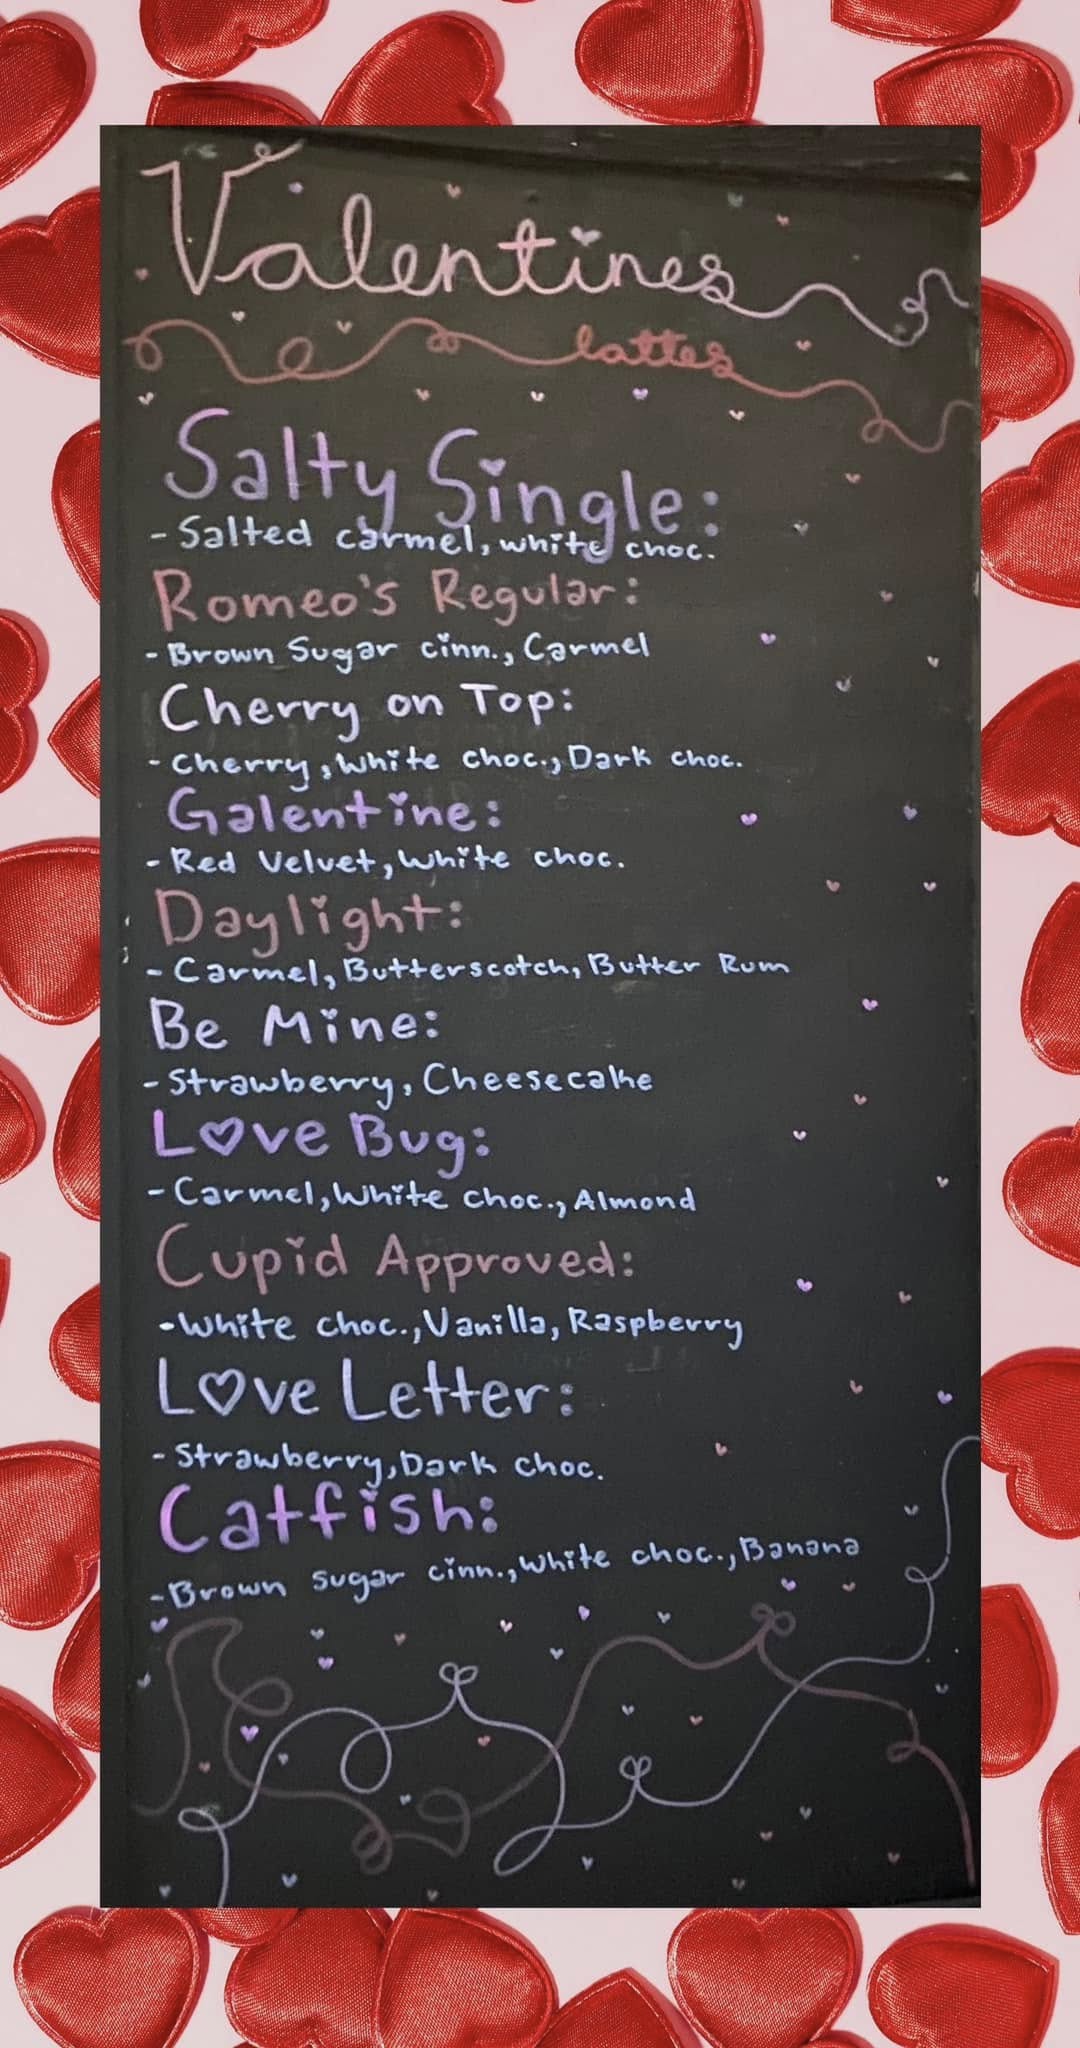 Valentines
lattes
Salty Single:
- Salted carmel, white choc.
Romeo's Regular:
- Brown Sugar cinn., Carmel
Cherry on Top:
- Cherry, White choc., Dark choc.
Galentine:
- Red Velvet, White choc.
Daylight:
- Carmel, Butterscotch, Butter Rum
Be Mine:
- Strawberry, Cheesecake
Love Bug:
- Carmel, White choc., Almond
Cupid Approved:
- White choc., Vanilla, Raspberry
Love Letter:
- Strawberry, Dark choc.
Catfish:
- Brown sugar cinn., White choc., Banana